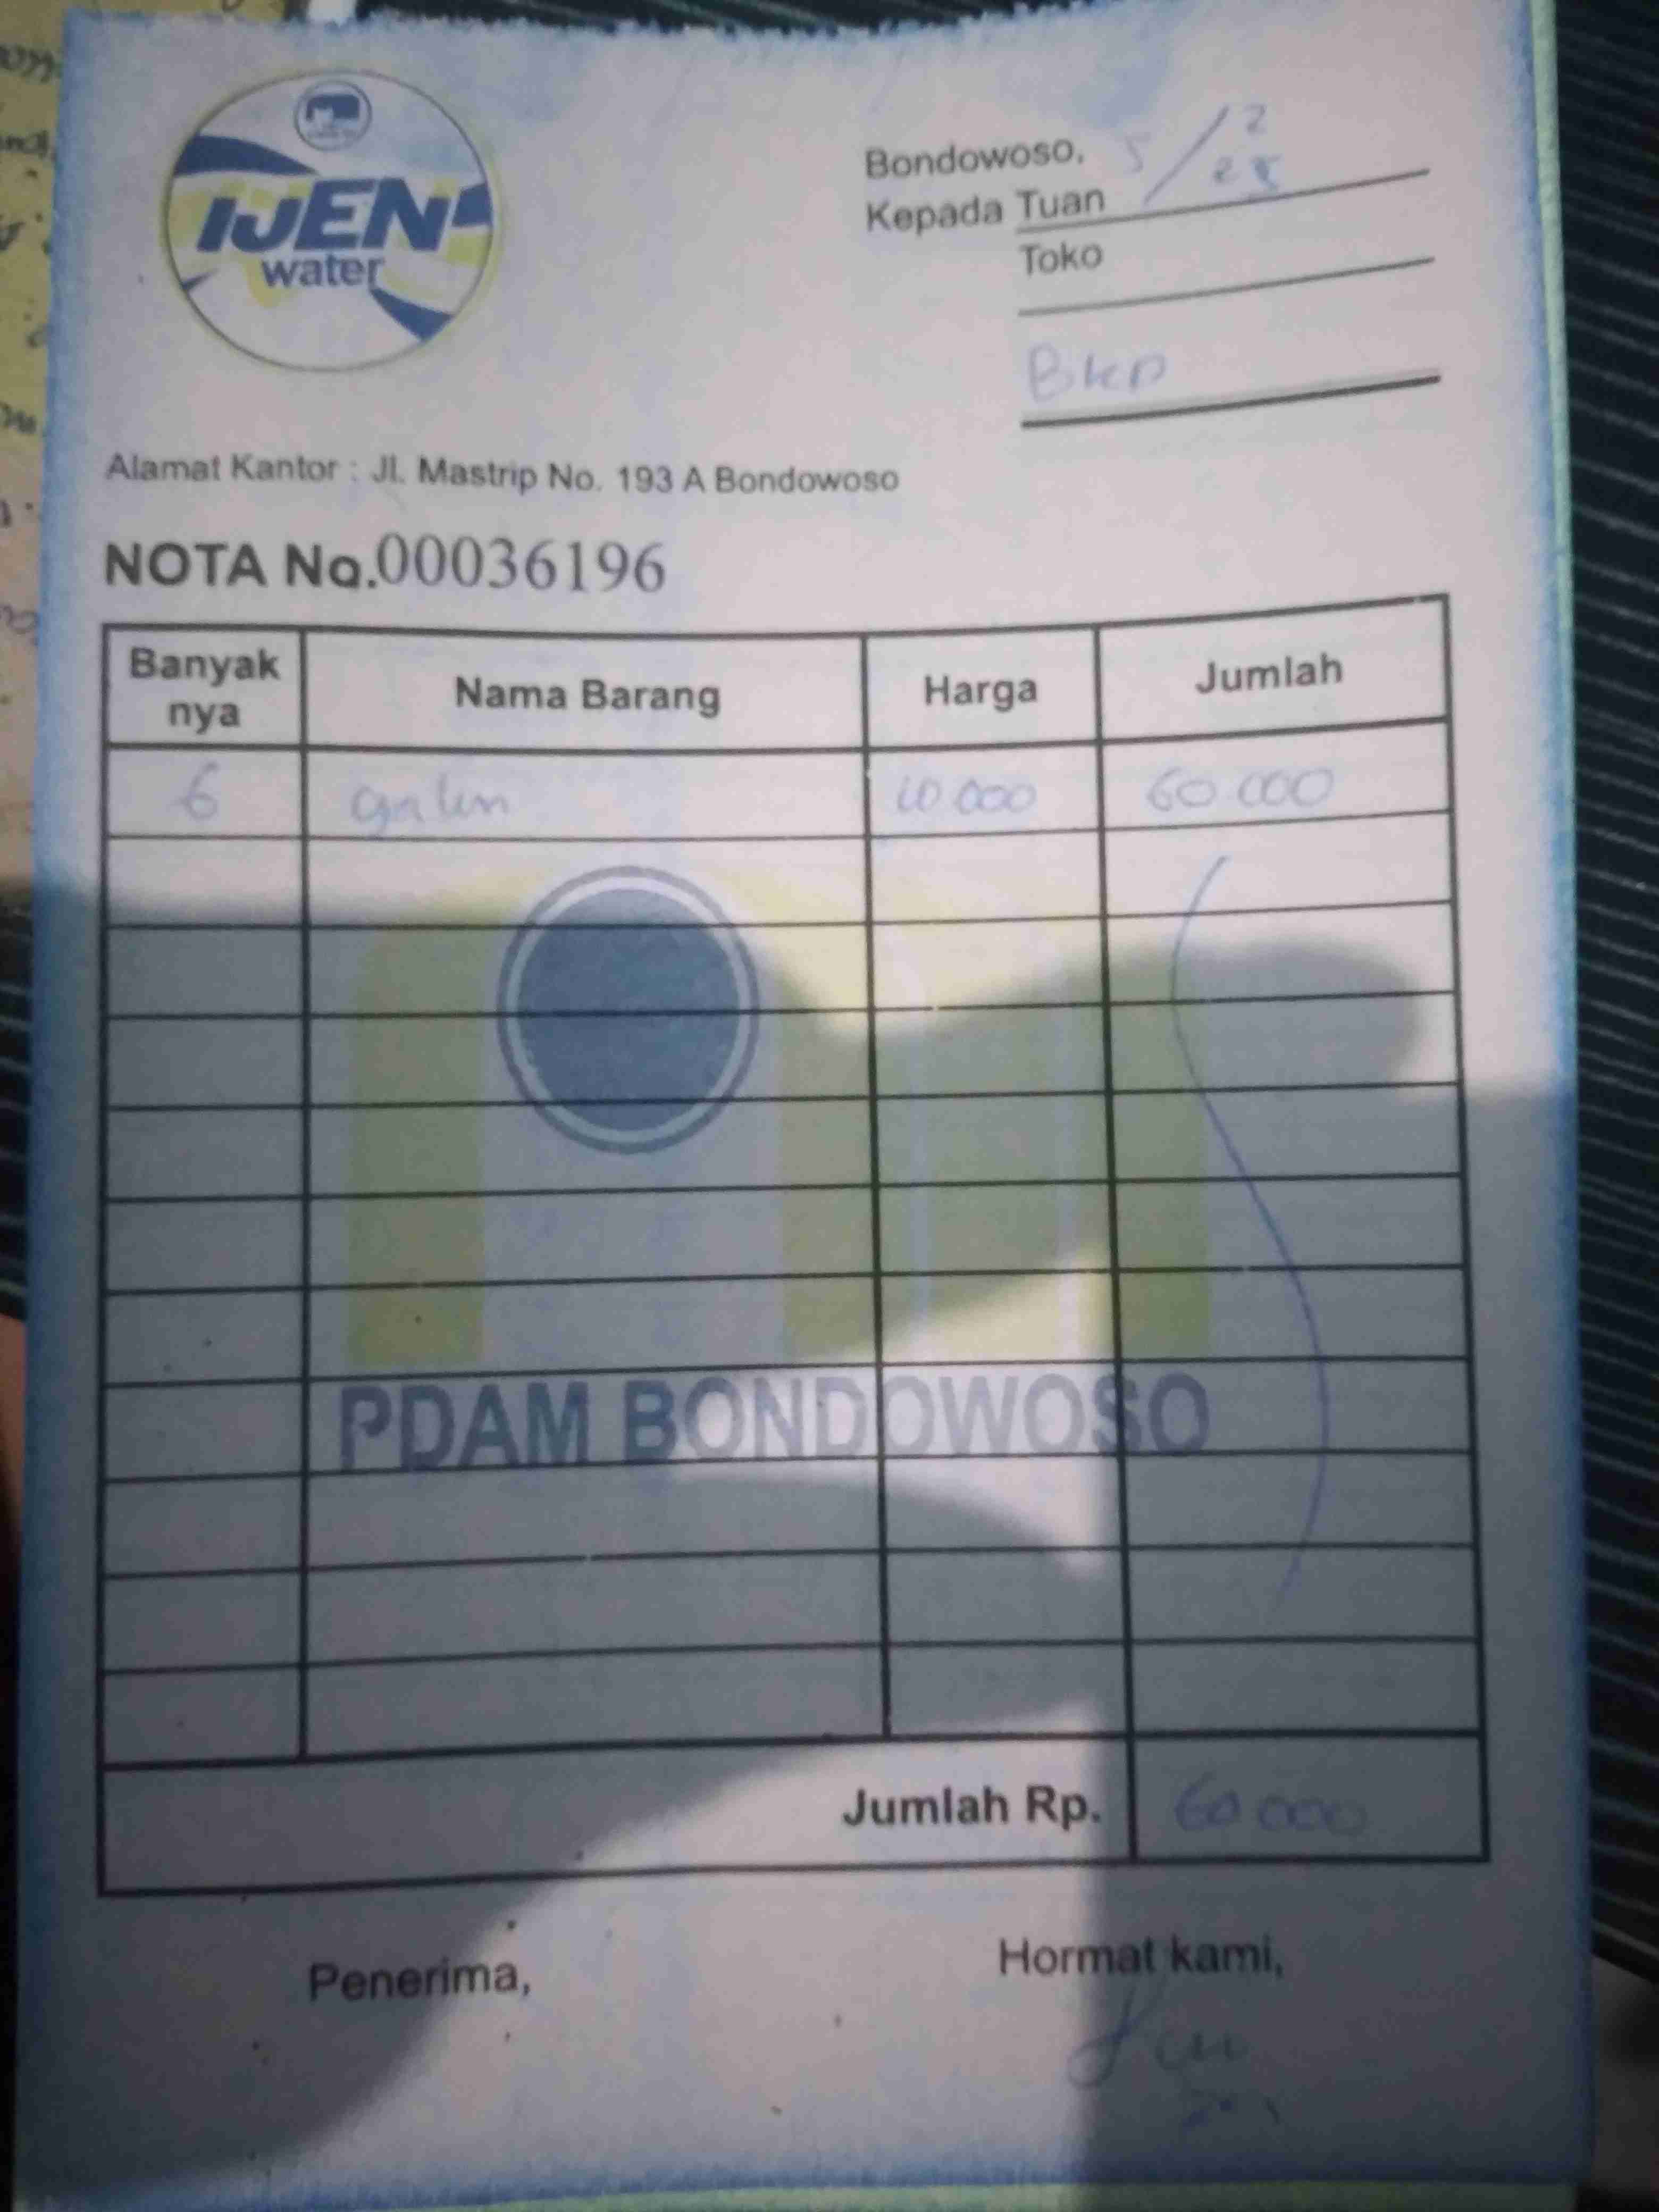 IJEN
water
Bondowoso, 5/2
Kepada Tuan
Toko
Alamat Kantor : Jl. Mastrip No. 193 A Bondowoso
NOTA No.00036196
Banyak nya Nama Barang Harga Jumlah
6 galun 10.000 60.000
PDAM BONDOWOSO
Jumlah Rp. 60.000
Penerima, Hormat kami,